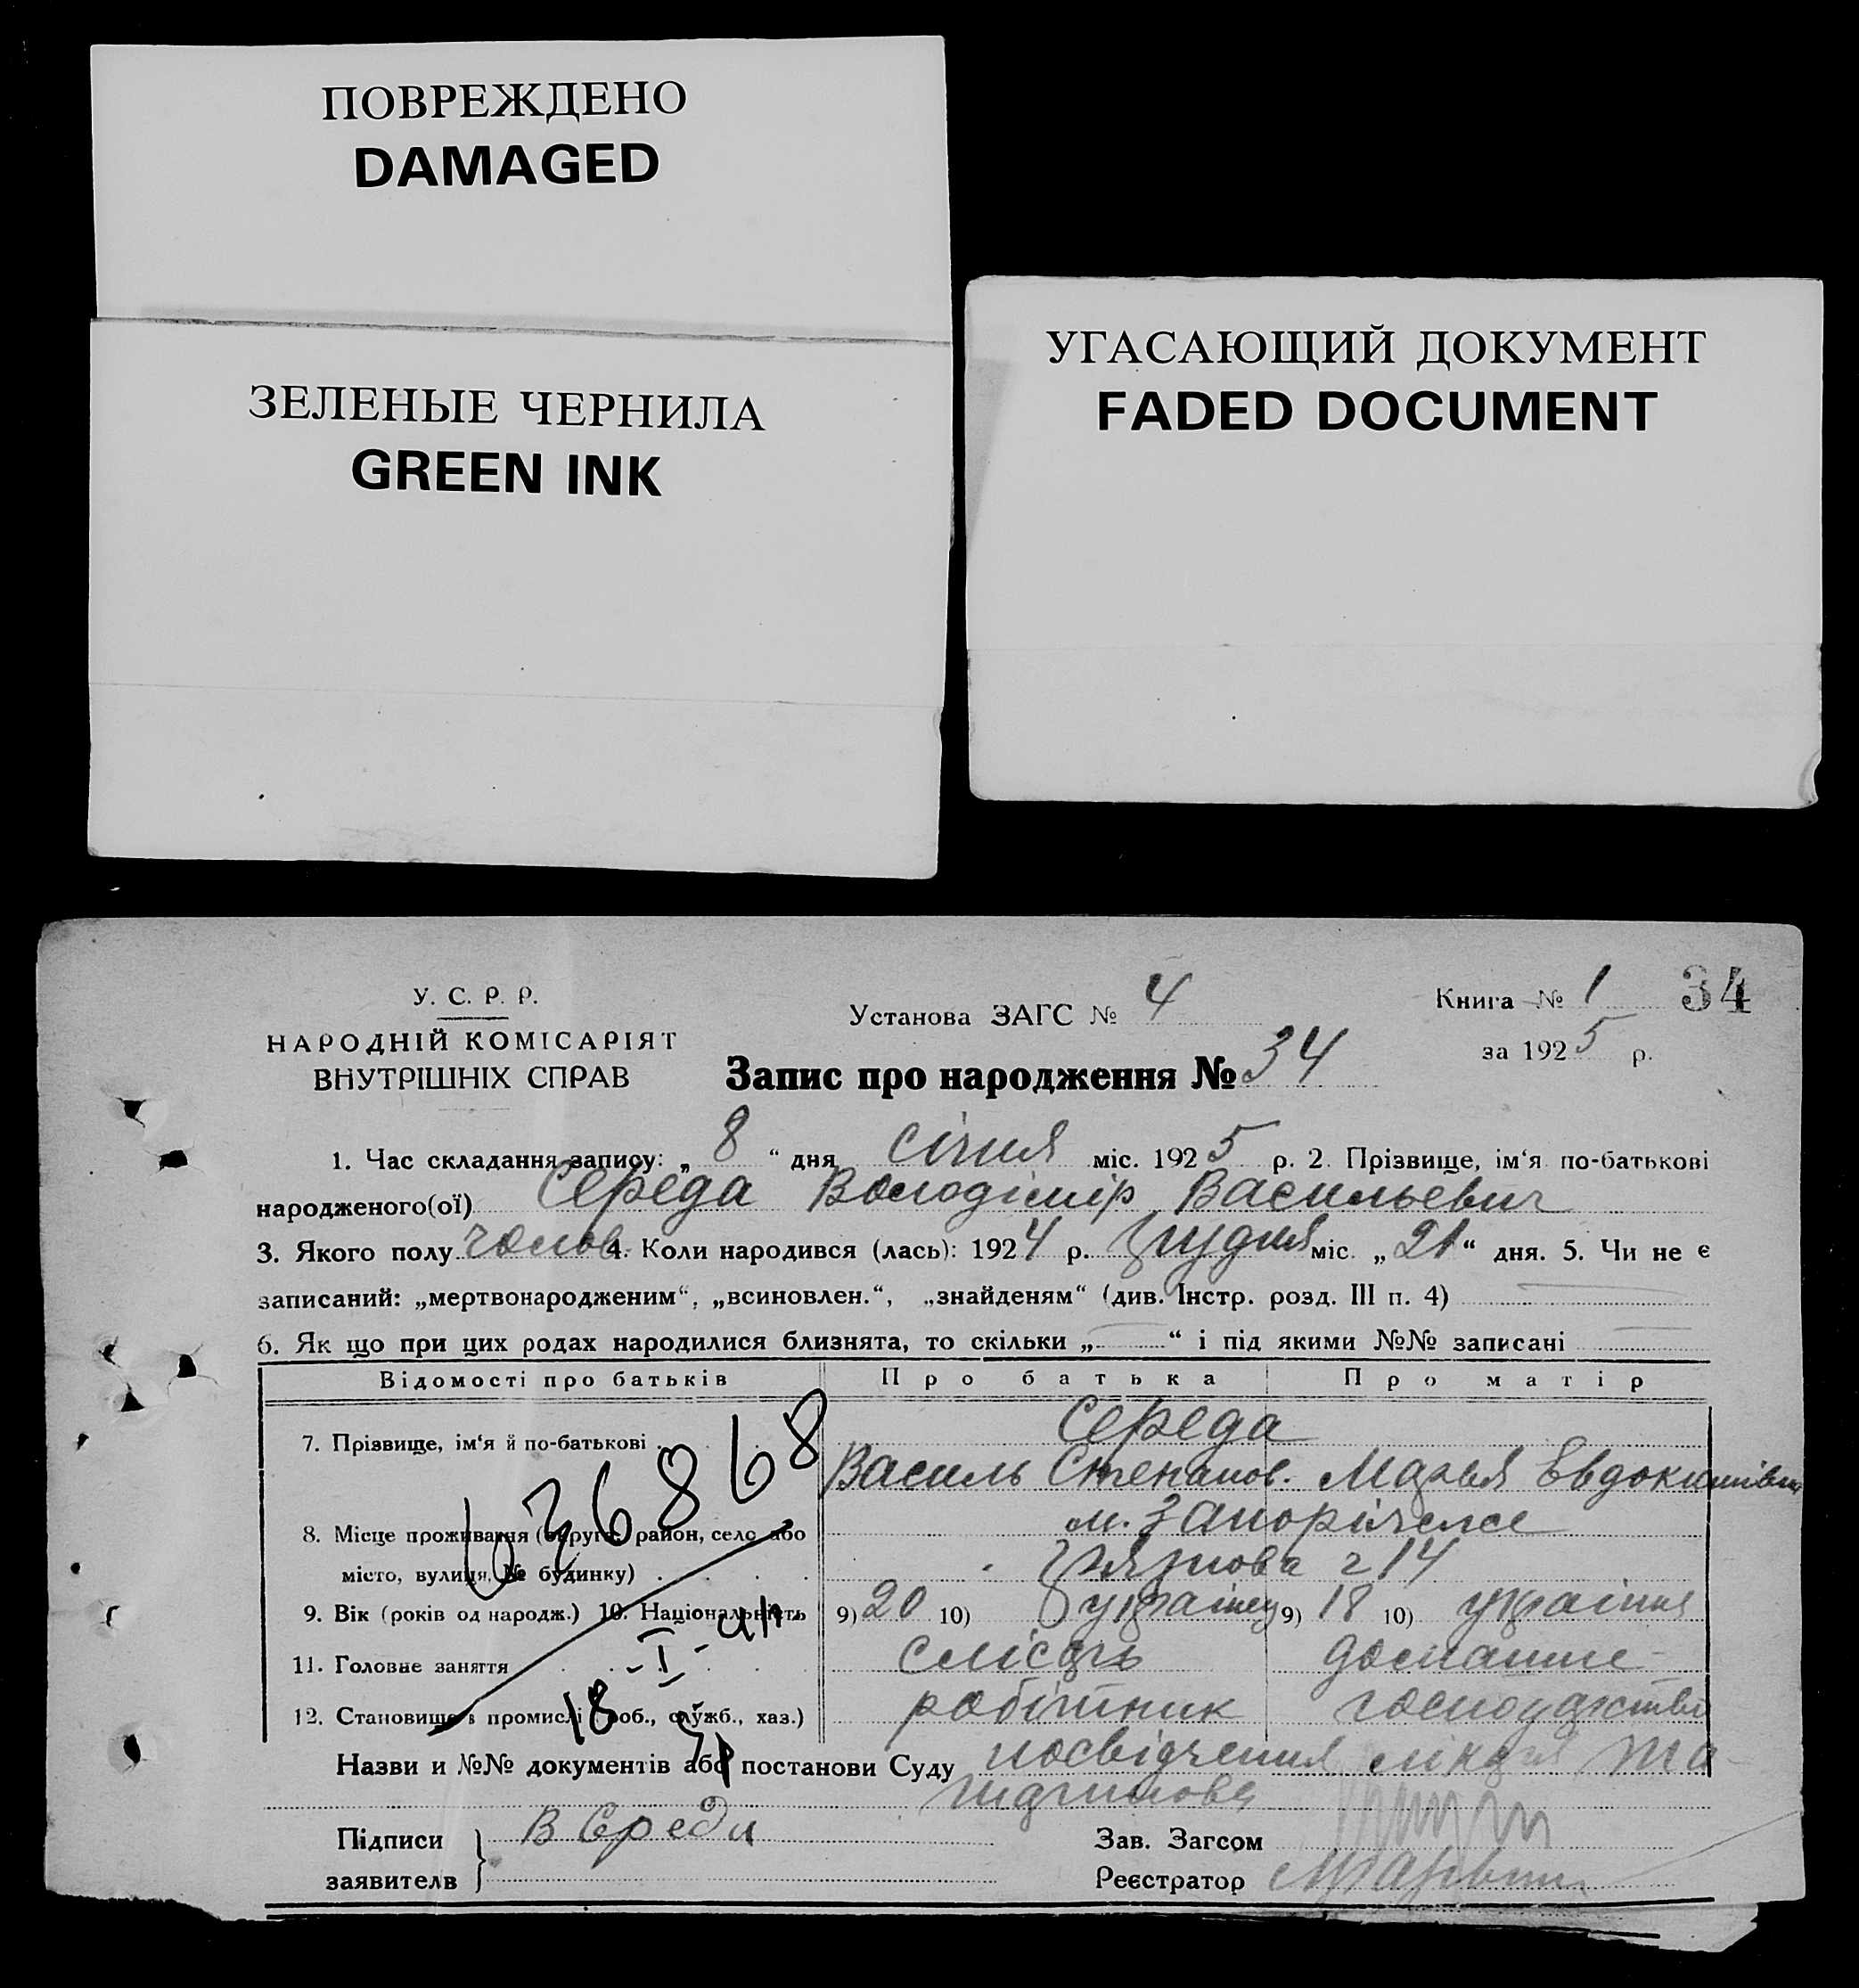 ПОВРЕЖДЕНО
DAMAGED
ЗЕЛЕНЫЕ ЧЕРНИЛА
GREEN INK
УГАСАЮЩИЙ ДОКУМЕНТ
FADED DOCUMENT
У. С. Р. Р.
НАРОДНІЙ КОМІСАРІЯТ
ВНУТРІШНІХ СПРАВ
Установа ЗАГС № 4
Запис про народження № 34
Книга № 1 34
за 1925 р.
1. Час складання запису: „ 8 “ дня січня міс. 1925 р. 2. Прізвище, ім‘я по-батькові
народженого(ої) Середа Володімір Васильевич
3. Якого полу чолов. 4. Коли народився (лась): 1924 р. грудня міс. „21“ дня. 5. Чи не є
записаний: „мертвонародженим“, „всиновлен.“, „знайденям“ (див. Інстр. розд. III п. 4)
6. Як що при цих родах народилися близнята, то скільки „ “ і під якими №№ записані
Відомості про батьків Про батька Про матір
7. Прізвище, ім‘я й по-батькові . Середа
Василь Степанов. Марья Евдокимівна
8. Місце проживання (округа, район, село або м. Запоріжже
місто, вулиця, № будинку) . 14
9. Вік (років од народж.) 10. Національність 9) 20 10) українец 9) 18 10) українка
11. Головне заняття слісарь домашне
12. Становище в промислі (роб., служб., хаз.) робітник господарство
636868
18 - I - 41
Назви и №№ документів або постанови Суду посвідчення лікаря та
Підписи В Середа
заявителв
Зав. Загсом
Реєстратор